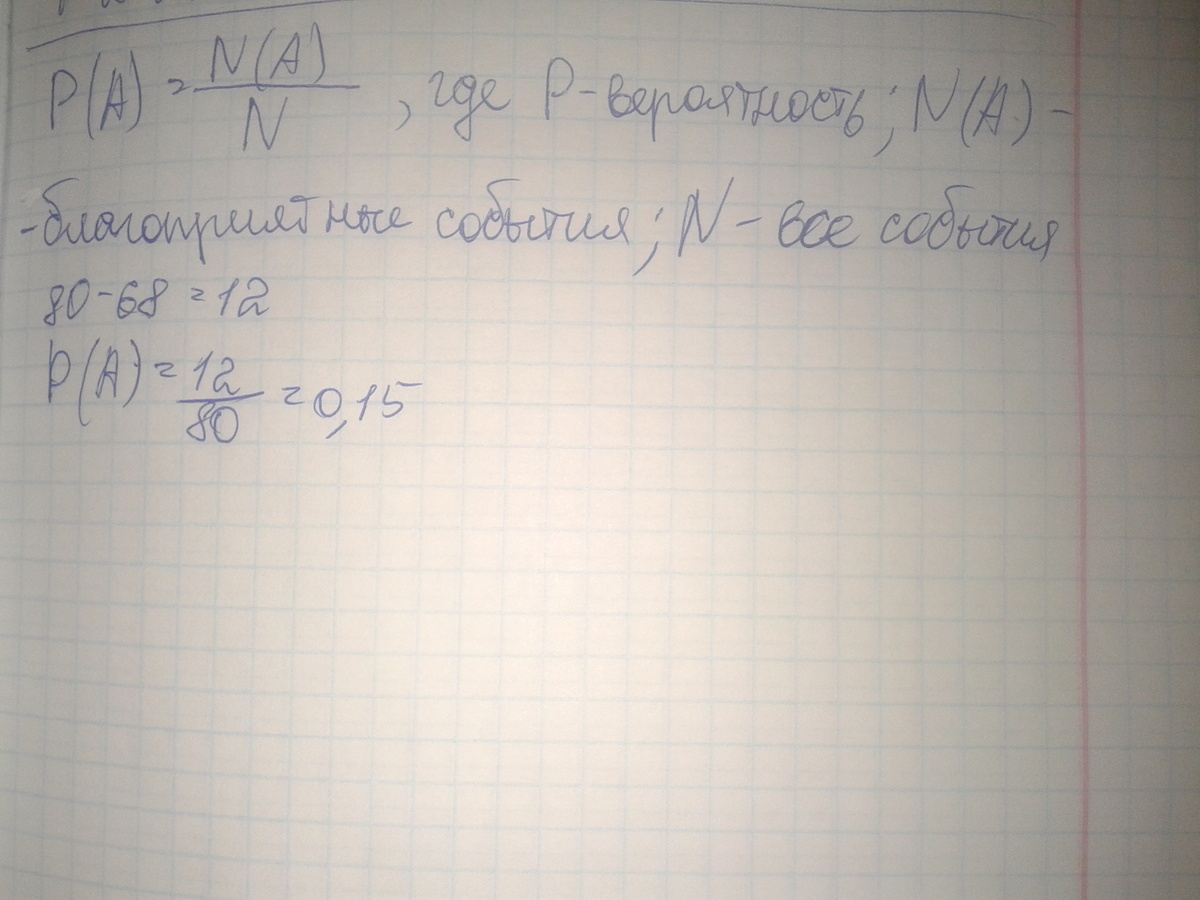 P(A) = N(A)/N , где P - вероятность; N(A) -
- благоприятные события; N - все события
80 - 68 = 12
P(A) = 12/80 = 0,15